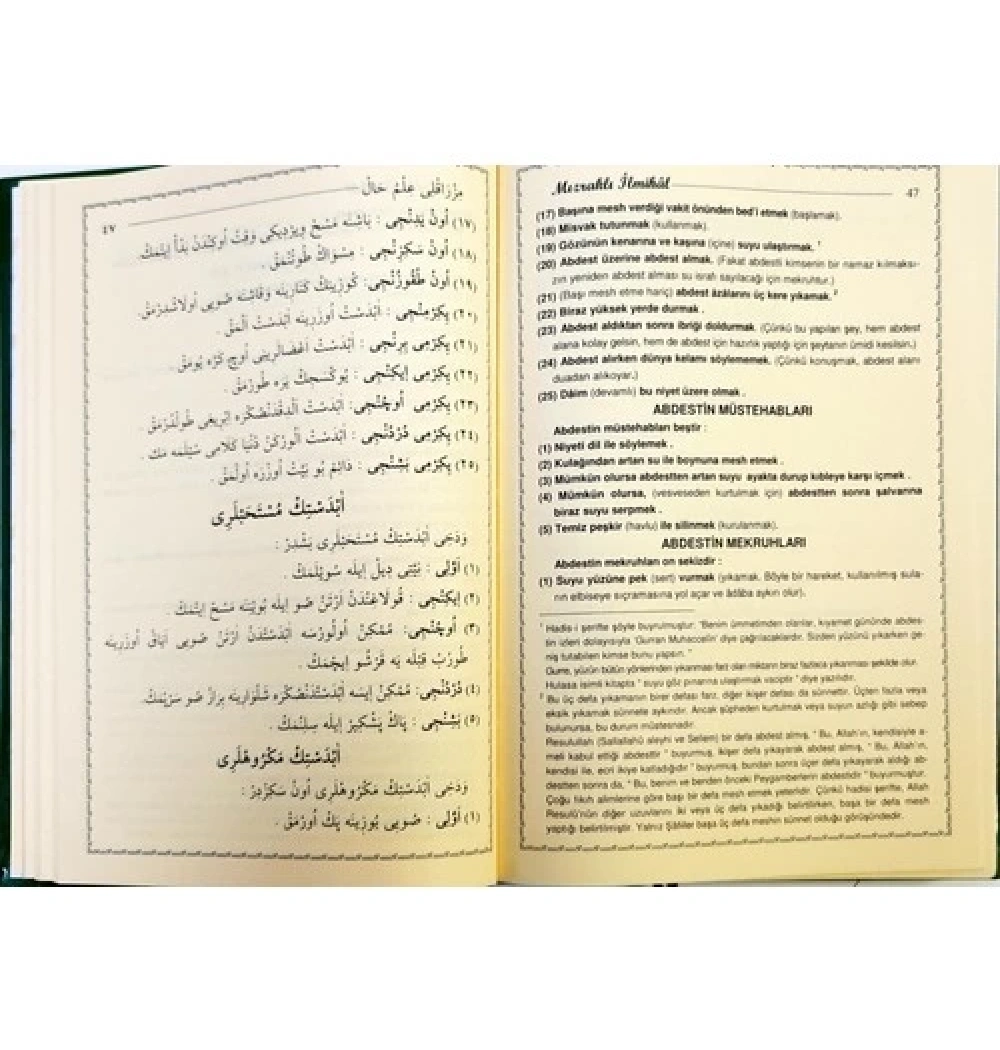 مزراقلى علم حال
٤٧
(١٧) اون يدنجى : باشنه مسح ويرديكى وقت اوكندن بدأ ايتمك.
(١٨) اون سكزنجى : مسواك طوتنمق .
(١٩) اون طقوزنجى: كوزينك كنارينه وقاشنه صويى اولاشدرمق.
(٢٠) يكرمنجى : آبدست اوزرينه آبدست آلمق .
(٢١) يكرمى برنجى : آبدست اعضالرينى اوچ كره يومق .
(٢٢) يكرمى ايكنجى : يوكسجك يره طورمق .
(٢٣) يكرمى اوچنجى: آبدست آلدقدنصكره ابريغى طولدرمق .
(٢٤) يكرمى دردنجى : آبدست آلوركن دنيا كلامى سويلمه مك .
(٢٥) يكرمى بشنجى : دائم بو نيت اوزره اولمق .
آبدستك مستحبلرى
ودخى آبدستك مستحبلرى بشدر :
(١) اولى : نيتى ديل ايله سويلمك .
(٢) ايكنجى : قولاغندن آرتن صو ايله بوينه مسح ايتمك .
(٣) اوچنجى: ممكن اولورسه آبدستدن آرتن صويى اياق اوزرينه
طورب قبله يه قرشو ايچمك .
(٤) دردنجى: ممكن ايسه آبدستدنصكره شلوارينه براز صو سرپمك.
(٥) بشنجى : پاك پشكير ايله سلنمك .
آبدستك مكروهلرى
ودخى آبدستك مكروهلرى اون سكزدر :
(١) اولى : صويى يوزينه پك اورمق .
Mızraklı İlmihâl
47
(17) Başına mesh verdiği vakit önünden bed'i etmek (başlamak).
(18) Misvak tutunmak (kullanmak).
(19) Gözünün kenarına ve kaşına (içine) suyu ulaştırmak. 1
(20) Abdest üzerine abdest almak. (Fakat abdesti kimsenin bir namaz kılmaksı-
zın yeniden abdest alması su israfı sayılacağı için mekruhtur.)
(21) (Başı mesh etme hariç) abdest âzâlarını üç kere yıkamak. 2
(22) Biraz yüksek yerde durmak .
(23) Abdest aldıktan sonra ibriği doldurmak. (Çünkü bu yapılan şey, hem abdest
alana kolay gelsin, hem de abdest için hazırlık yaptığı için şeytanın ümidi kesilsin.)
(24) Abdest alırken dünya kelamı söylememek. (Çünkü konuşmak, abdest alanı
duadan alıkoyar.)
(25) Dâim (devamlı) bu niyet üzere olmak .
ABDESTİN MÜSTEHABLARI
Abdestin müstehabları beştir :
(1) Niyeti dil ile söylemek .
(2) Kulağından artan su ile boynuna mesh etmek .
(3) Mümkün olursa abdestten artan suyu ayakta durup kıbleye karşı içmek .
(4) Mümkün olursa, (vesveseden kurtulmak için) abdestten sonra şalvarına
biraz suyu serpmek .
(5) Temiz peşkir (havlu) ile silinmek (kurulanmak).
ABDESTİN MEKRUHLARI
Abdestin mekruhları on sekizdir :
(1) Suyu yüzüne pek (sert) vurmak (yıkamak. Böyle bir hareket, kullanılmış sula-
rın elbiseye sıçramasına yol açar ve âdâba aykırı olur).
1 Hadis-i şerifte şöyle buyrulmuştur: "Benim ümmetimden olanlar, kıyamet gününde abdes-
tin izleri dolayısıyla 'Gurran Muhaccelin' diye çağrılacaklardır. Sizden yüzünü yıkarken ge-
niş tutabilen kimse bunu yapsın. "
Gurre, yüzün bütün yönlerinden yıkanması farz olan miktarın biraz fazlaca yıkanması şeklinde olur.
Hulasa isimli kitapta " suyu göz pınarına ulaştırmak vaciptir " diye yazılıdır.
2 Bu üç defa yıkamanın birer defası farz, diğer ikişer defası da sünnettir. Üçten fazla veya
eksik yıkamak sünnete aykırıdır. Ancak şüpheden kurtulmak veya suyun azlığı gibi sebep
bulunursa, bu durum müstesnadır.
Resulullah (Sallallahü aleyhi ve Sellem) bir defa abdest almış, " Bu, Allah'ın, kendisiyle a-
meli kabul ettiği abdesttir " buyurmuş, ikişer defa yıkayarak abdest almış, " Bu, Allah'ın,
kendisi ile, ecri ikiye katladığıdır " buyurmuş, bundan sonra üçer defa yıkayarak aldığı ab-
destten sonra da, " Bu, benim ve benden önceki Peygamberlerin abdestidir " buyurmuştur.
Çoğu fıkıh alimlerine göre başı bir defa mesh etmek yeterlidir. Çünkü hadisi şerifte, Allah
Resulü'nün diğer uzuvlarını iki veya üç defa yıkadığı belirtilirken, başa bir defa mesh
yaptığı belirtilmiştir. Yalnız Şâfiiler başa üç defa meshin sünnet olduğu görüşündedir.